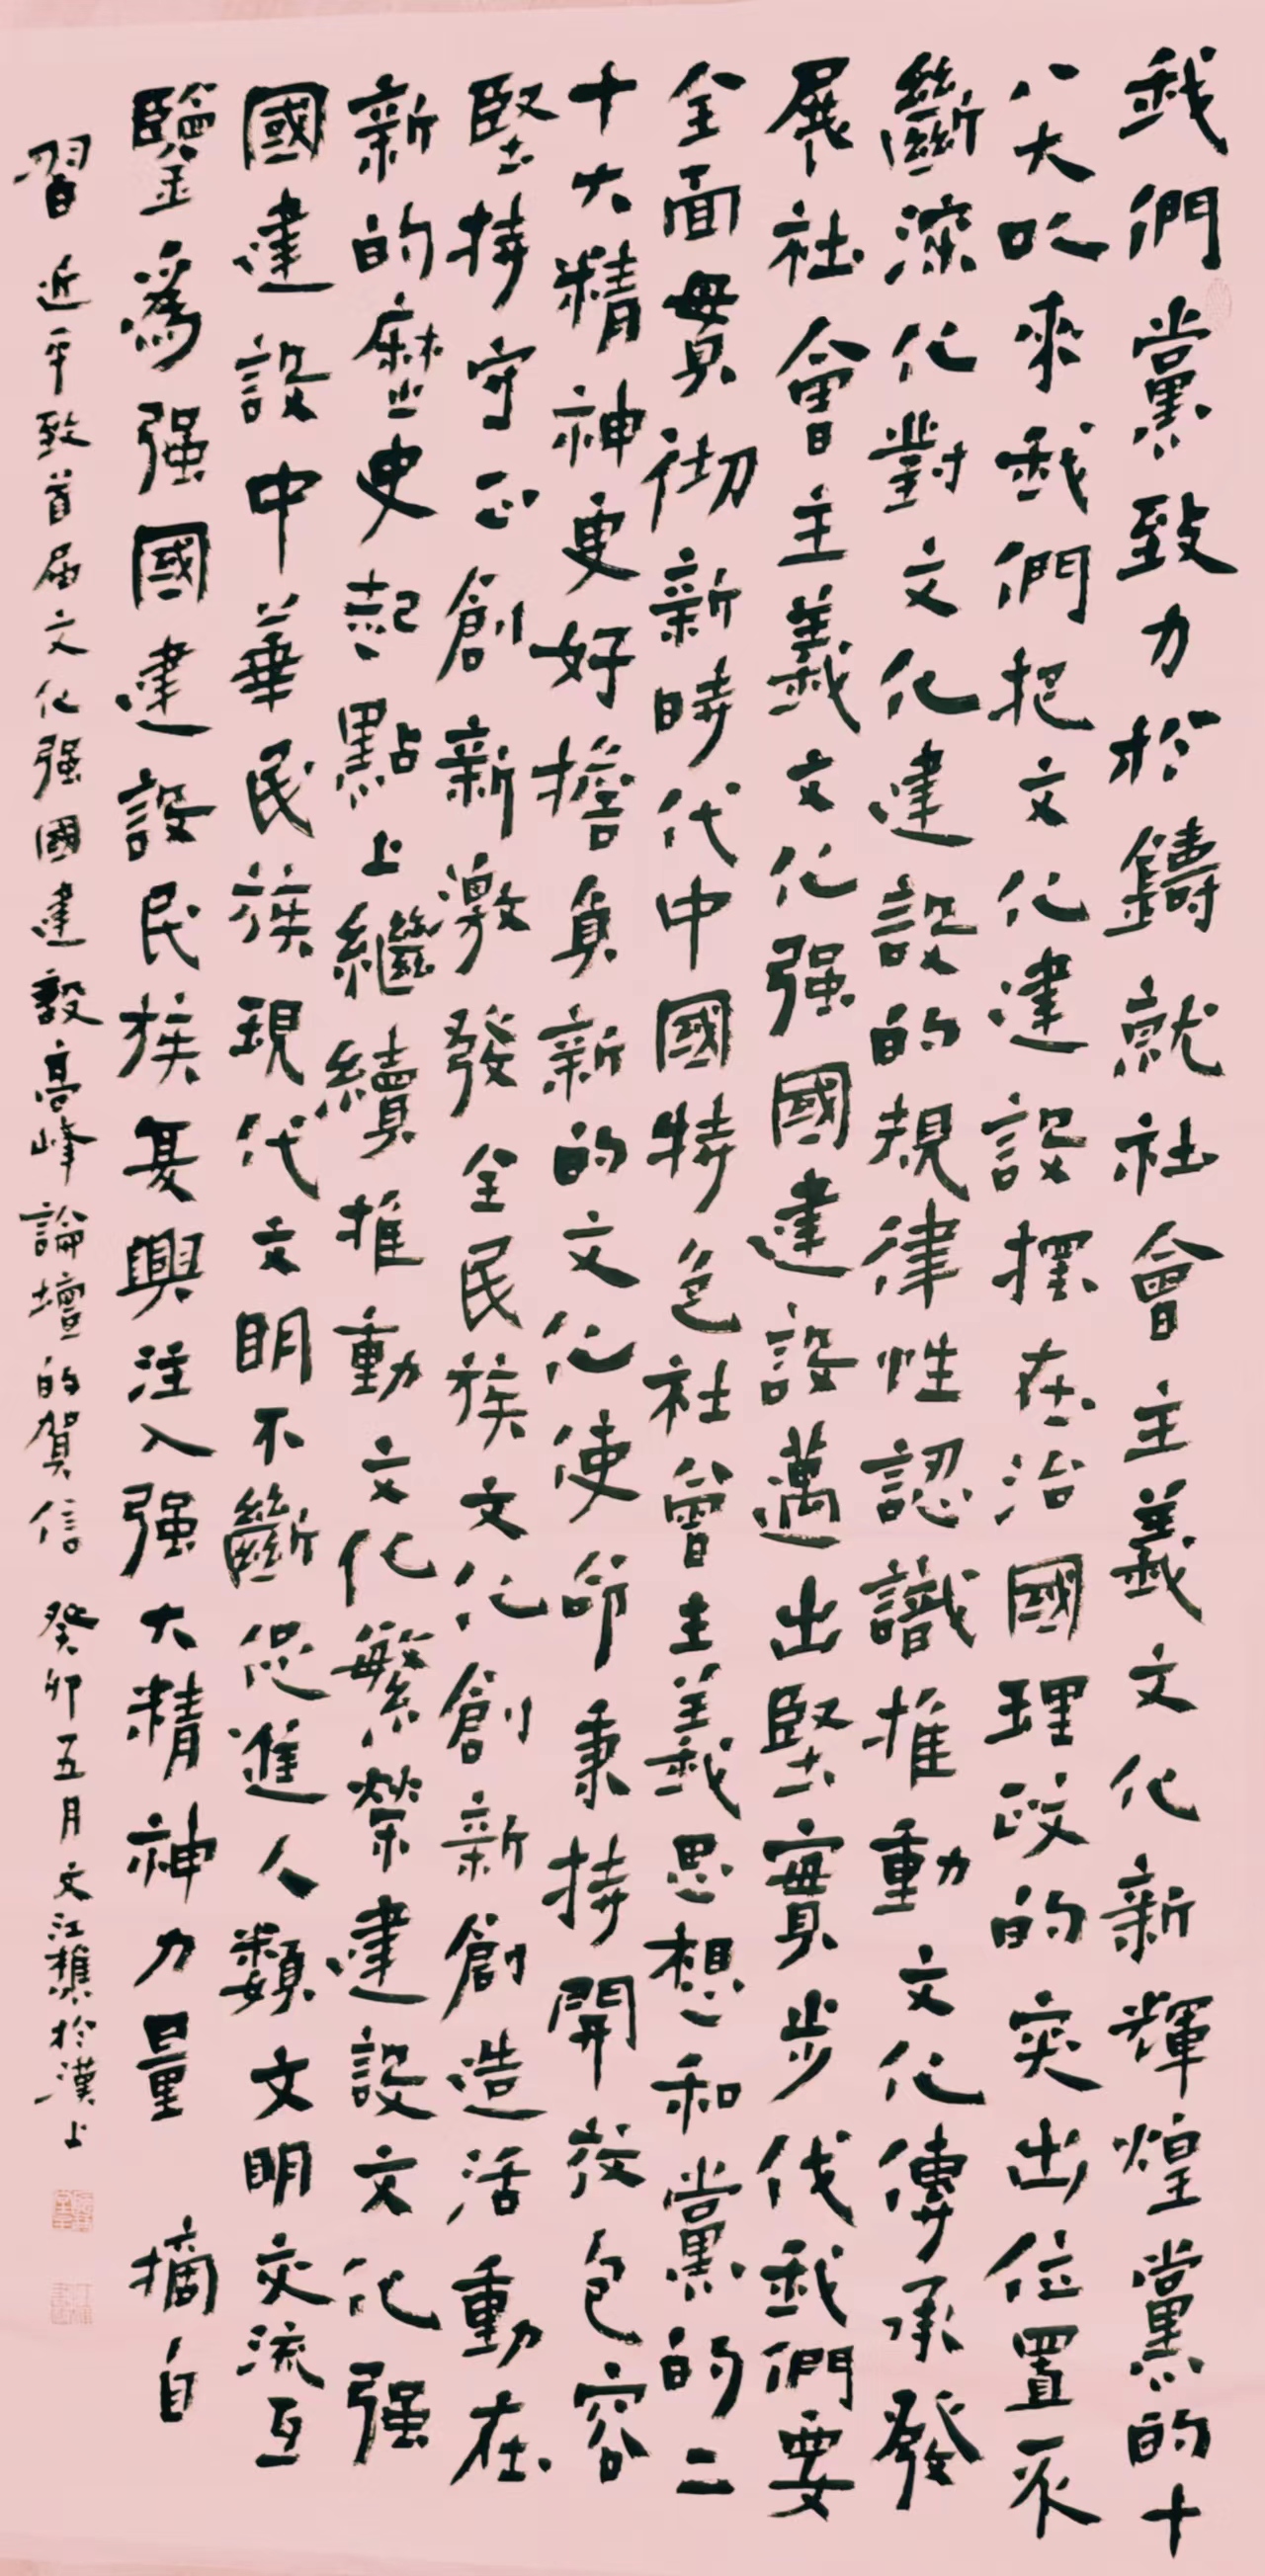 我們黨致力於鑄就社會主義文化新輝煌黨的十
八大以來我們把文化建設擺在治國理政的突出位置不
斷深化對文化建設的規律性認識推動文化傳承發
展社會主義文化强國建設邁出堅實步伐我們要
全面貫彻新時代中國特色社會主義思想和黨的二
十大精神更好擔負新的文化使命秉持開放包容
堅持守正創新激發全民族文化創新創造活動在
新的歷史起點上繼續推動文化繁榮建設文化强
國建設中華民族現代文明不斷促進人類文明交流互
鑒爲强國建設民族复興注入强大精神力量 摘自
習近平致首届文化强國建設高峰論壇的賀信 癸卯五月文江樵於漢上